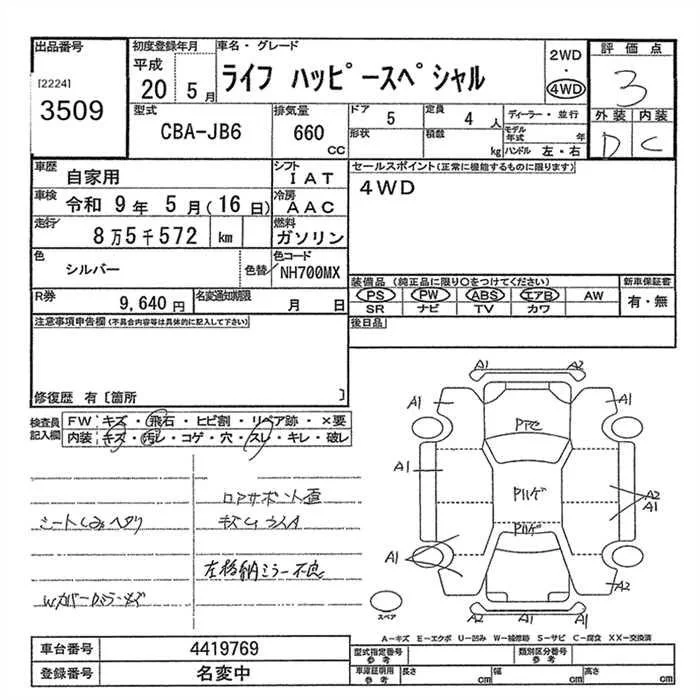 出品番号 初度登録年月 車名・グレード 評価点
[2224] 平成 ライフ ハッピースペシャル 2WD
3509 20 5月 ・ 4WD 3
型式 排気量 ドア 5 定員 4人 ディーラー・並行 外装 内装
CBA-JB6 660 CC 形状 積載 kg モデル年式 年 D C
ハンドル 左・右
車歴 自家用 シフト IAT セールスポイント(正常に機能するものに限ります)
車検 令和 9年 5月(16日) 冷房 AAC 4WD
走行 8万5千572 km 燃料 ガソリン
色 シルバー 色替 色コード NH700MX
装備品(純正品に限り○をつけてください) 新車保証書
R券 9,640円 名変通知期限 月 日 PS PW ABS エアB AW 有・無
SR ナビ TV カワ
注意事項申告欄(不具合内容等は具体的に記入して下さい) 後日品
修復歴 有〔箇所 〕
検査員記入欄 FW キズ・飛石・ヒビ割・リペア跡・×要
内装 キズ・汚レ・コゲ・穴・スレ・キレ・破レ
A1 A2
A1 A1
Pアセ
A1 Pハゲ A2
A1
Pハゲ
A1 A2
A1 A2
シートしみヘタリ
キズ
左格納ミラー不良
スペア
A-キズ E-エクボ U-凹み W-補修跡 S-サビ C-腐食 XX-交換済
車台番号 4419769 型式指定番号 参考 類別区分番号 参考
登録番号 名変中 車庫証明用 参考 長さ cm 幅 cm 高さ cm